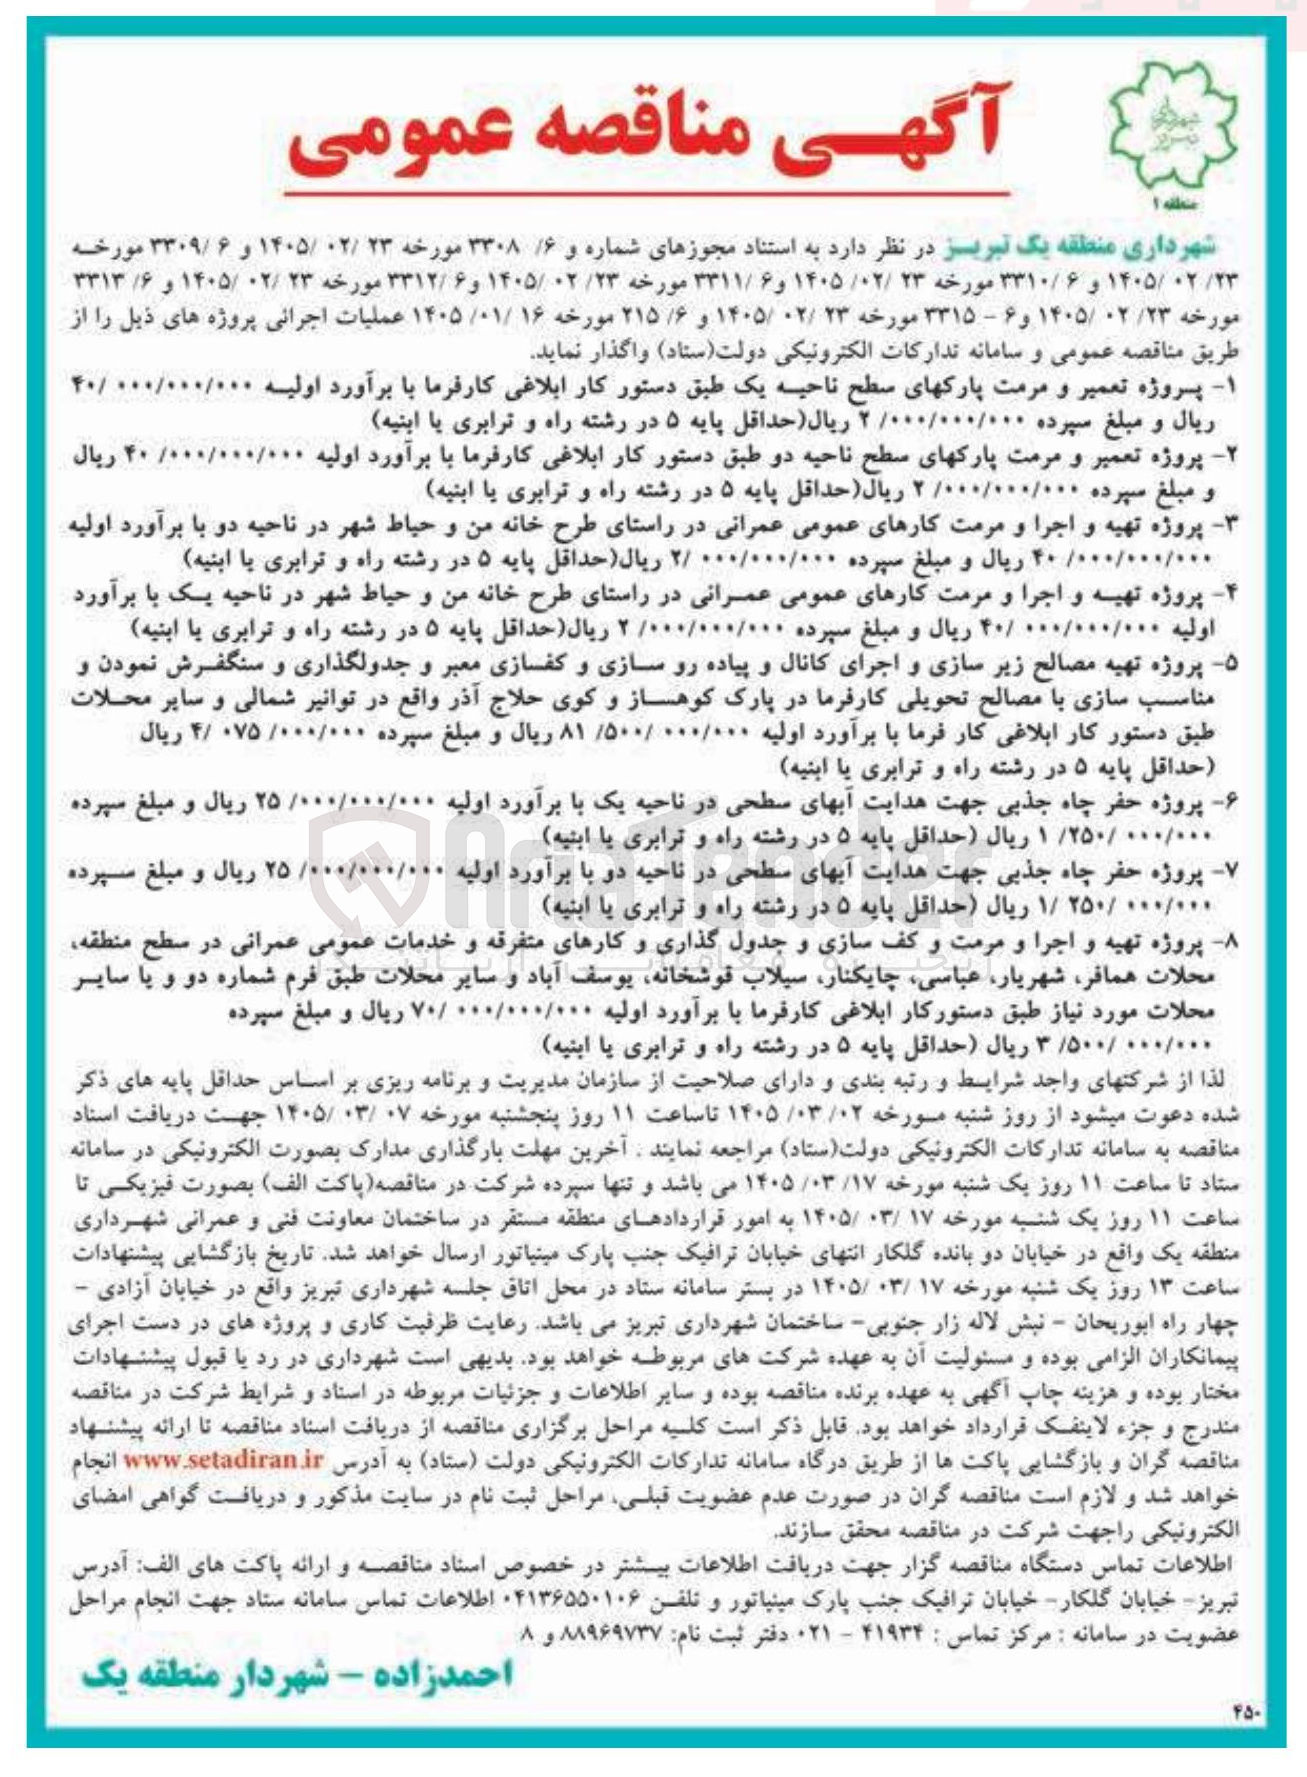 شهرداری تبریز
منطقه ۱
آگهی مناقصه عمومی
شهرداری منطقه یک تبریز در نظر دارد به استناد مجوزهای شماره و ۶/ ۳۳۰۸ مورخه ۲۳ /۰۲ /۱۴۰۵ و ۶ /۳۳۰۹ مورخه
۲۳/ ۰۲ /۱۴۰۵ و ۶ /۳۳۱۰ مورخه ۲۳ /۰۲/ ۱۴۰۵ و۶ /۳۳۱۱ مورخه ۲۳/ ۰۲ /۱۴۰۵ و۶ /۳۳۱۲ مورخه ۲۳ /۰۲ /۱۴۰۵ و ۶/ ۳۳۱۳
مورخه ۲۳/ ۰۲ /۱۴۰۵ و۶ - ۳۳۱۵ مورخه ۲۳ /۰۲ /۱۴۰۵ و ۶/ ۲۱۵ مورخه ۱۶ /۰۱/ ۱۴۰۵ عملیات اجرائی پروژه های ذیل را از
طریق مناقصه عمومی و سامانه تدارکات الکترونیکی دولت(ستاد) واگذار نماید.
۱- پروژه تعمیر و مرمت پارکهای سطح ناحیه یک طبق دستور کار ابلاغی کارفرما با برآورد اولیه ۰۰۰/۰۰۰/۰۰۰ /۴۰
ریال و مبلغ سپرده ۰۰۰/۰۰۰/۰۰۰/ ۲ ریال(حداقل پایه ۵ در رشته راه و ترابری یا ابنیه)
۲- پروژه تعمیر و مرمت پارکهای سطح ناحیه دو طبق دستور کار ابلاغی کارفرما با برآورد اولیه ۰۰۰/۰۰۰/۰۰۰/ ۴۰ ریال
و مبلغ سپرده ۰۰۰/۰۰۰/۰۰۰/ ۲ ریال(حداقل پایه ۵ در رشته راه و ترابری یا ابنیه)
۳- پروژه تهیه و اجرا و مرمت کارهای عمومی عمرانی در راستای طرح خانه من و حیاط شهر در ناحیه دو با برآورد اولیه
۰۰۰/۰۰۰/۰۰۰/ ۴۰ ریال و مبلغ سپرده ۰۰۰/۰۰۰/۰۰۰ /۲ ریال(حداقل پایه ۵ در رشته راه و ترابری یا ابنیه)
۴- پروژه تهیه و اجرا و مرمت کارهای عمومی عمرانی در راستای طرح خانه من و حیاط شهر در ناحیه یک با برآورد
اولیه ۰۰۰/۰۰۰/۰۰۰ /۴۰ ریال و مبلغ سپرده ۰۰۰/۰۰۰/۰۰۰/ ۲ ریال(حداقل پایه ۵ در رشته راه و ترابری یا ابنیه)
۵- پروژه تهیه مصالح زیر سازی و اجرای کانال و پیاده رو سازی و کفسازی معبر و جدولگذاری و سنگفرش نمودن و
مناسب سازی با مصالح تحویلی کارفرما در پارک کوهساز و کوی حلاج آذر واقع در توانیر شمالی و سایر محلات
طبق دستور کار ابلاغی کار فرما با برآورد اولیه ۰۰۰/۰۰۰ /۵۰۰/ ۸۱ ریال و مبلغ سپرده ۰۰۰/۰۰۰/ ۰۷۵ /۴ ریال
(حداقل پایه ۵ در رشته راه و ترابری یا ابنیه)
۶- پروژه حفر چاه جذبی جهت هدایت آبهای سطحی در ناحیه یک با برآورد اولیه ۰۰۰/۰۰۰/۰۰۰/ ۲۵ ریال و مبلغ سپرده
۰۰۰/۰۰۰ /۲۵۰/ ۱ ریال (حداقل پایه ۵ در رشته راه و ترابری یا ابنیه)
۷- پروژه حفر چاه جذبی جهت هدایت آبهای سطحی در ناحیه دو با برآورد اولیه ۰۰۰/۰۰۰/۰۰۰/ ۲۵ ریال و مبلغ سپرده
۰۰۰/۰۰۰ /۲۵۰ /۱ ریال (حداقل پایه ۵ در رشته راه و ترابری یا ابنیه)
AriaTender
۸- پروژه تهیه و اجرا و مرمت و کف سازی و جدول گذاری و کارهای متفرقه و خدمات عمومی عمرانی در سطح منطقه،
محلات همافر، شهریار، عباسی، چایکنار، سیلاب قوشخانه، یوسف آباد و سایر محلات طبق فرم شماره دو و یا سایر
محلات مورد نیاز طبق دستورکار ابلاغی کارفرما با برآورد اولیه ۰۰۰/۰۰۰/۰۰۰ /۷۰ ریال و مبلغ سپرده
۰۰۰/۰۰۰ /۵۰۰/ ۳ ریال (حداقل پایه ۵ در رشته راه و ترابری یا ابنیه)
لذا از شرکتهای واجد شرایط و رتبه بندی و دارای صلاحیت از سازمان مدیریت و برنامه ریزی بر اساس حداقل پایه های ذکر
شده دعوت میشود از روز شنبه مورخه ۰۲/ ۰۳/ ۱۴۰۵ تاساعت ۱۱ روز پنجشنبه مورخه ۰۷ /۰۳ /۱۴۰۵ جهت دریافت اسناد
مناقصه به سامانه تدارکات الکترونیکی دولت(ستاد) مراجعه نمایند . آخرین مهلت بارگذاری مدارک بصورت الکترونیکی در سامانه
ستاد تا ساعت ۱۱ روز یک شنبه مورخه ۱۷/ ۰۳/ ۱۴۰۵ می باشد و تنها سپرده شرکت در مناقصه(پاکت الف) بصورت فیزیکی تا
ساعت ۱۱ روز یک شنبه مورخه ۱۷ /۰۳ /۱۴۰۵ به امور قراردادهای منطقه مستقر در ساختمان معاونت فنی و عمرانی شهرداری
منطقه یک واقع در خیابان دو بانده گلکار انتهای خیابان ترافیک جنب پارک مینیاتور ارسال خواهد شد. تاریخ بازگشایی پیشنهادات
ساعت ۱۳ روز یک شنبه مورخه ۱۷ /۰۳ /۱۴۰۵ در بستر سامانه ستاد در محل اتاق جلسه شهرداری تبریز واقع در خیابان آزادی -
چهار راه ابوریحان - نبش لاله زار جنوبی- ساختمان شهرداری تبریز می باشد. رعایت ظرفیت کاری و پروژه های در دست اجرای
پیمانکاران الزامی بوده و مسئولیت آن به عهده شرکت های مربوطه خواهد بود. بدیهی است شهرداری در رد یا قبول پیشنهادات
مختار بوده و هزینه چاپ آگهی به عهده برنده مناقصه بوده و سایر اطلاعات و جزئیات مربوطه در اسناد و شرایط شرکت در مناقصه
مندرج و جزء لاینفک قرارداد خواهد بود. قابل ذکر است کلیه مراحل برگزاری مناقصه از دریافت اسناد مناقصه تا ارائه پیشنهاد
مناقصه گران و بازگشایی پاکت ها از طریق درگاه سامانه تدارکات الکترونیکی دولت (ستاد) به آدرس www.setadiran.ir انجام
خواهد شد و لازم است مناقصه گران در صورت عدم عضویت قبلی، مراحل ثبت نام در سایت مذکور و دریافت گواهی امضای
الکترونیکی راجهت شرکت در مناقصه محقق سازند.
اطلاعات تماس دستگاه مناقصه گزار جهت دریافت اطلاعات بیشتر در خصوص اسناد مناقصه و ارائه پاکت های الف: آدرس
تبریز- خیابان گلکار- خیابان ترافیک جنب پارک مینیاتور و تلفن ۰۴۱۳۶۵۵۰۱۰۶ اطلاعات تماس سامانه ستاد جهت انجام مراحل
عضویت در سامانه : مرکز تماس : ۴۱۹۳۴ - ۰۲۱ دفتر ثبت نام: ۸۸۹۶۹۷۳۷ و ۸
احمدزاده - شهردار منطقه یک
۴۵۰